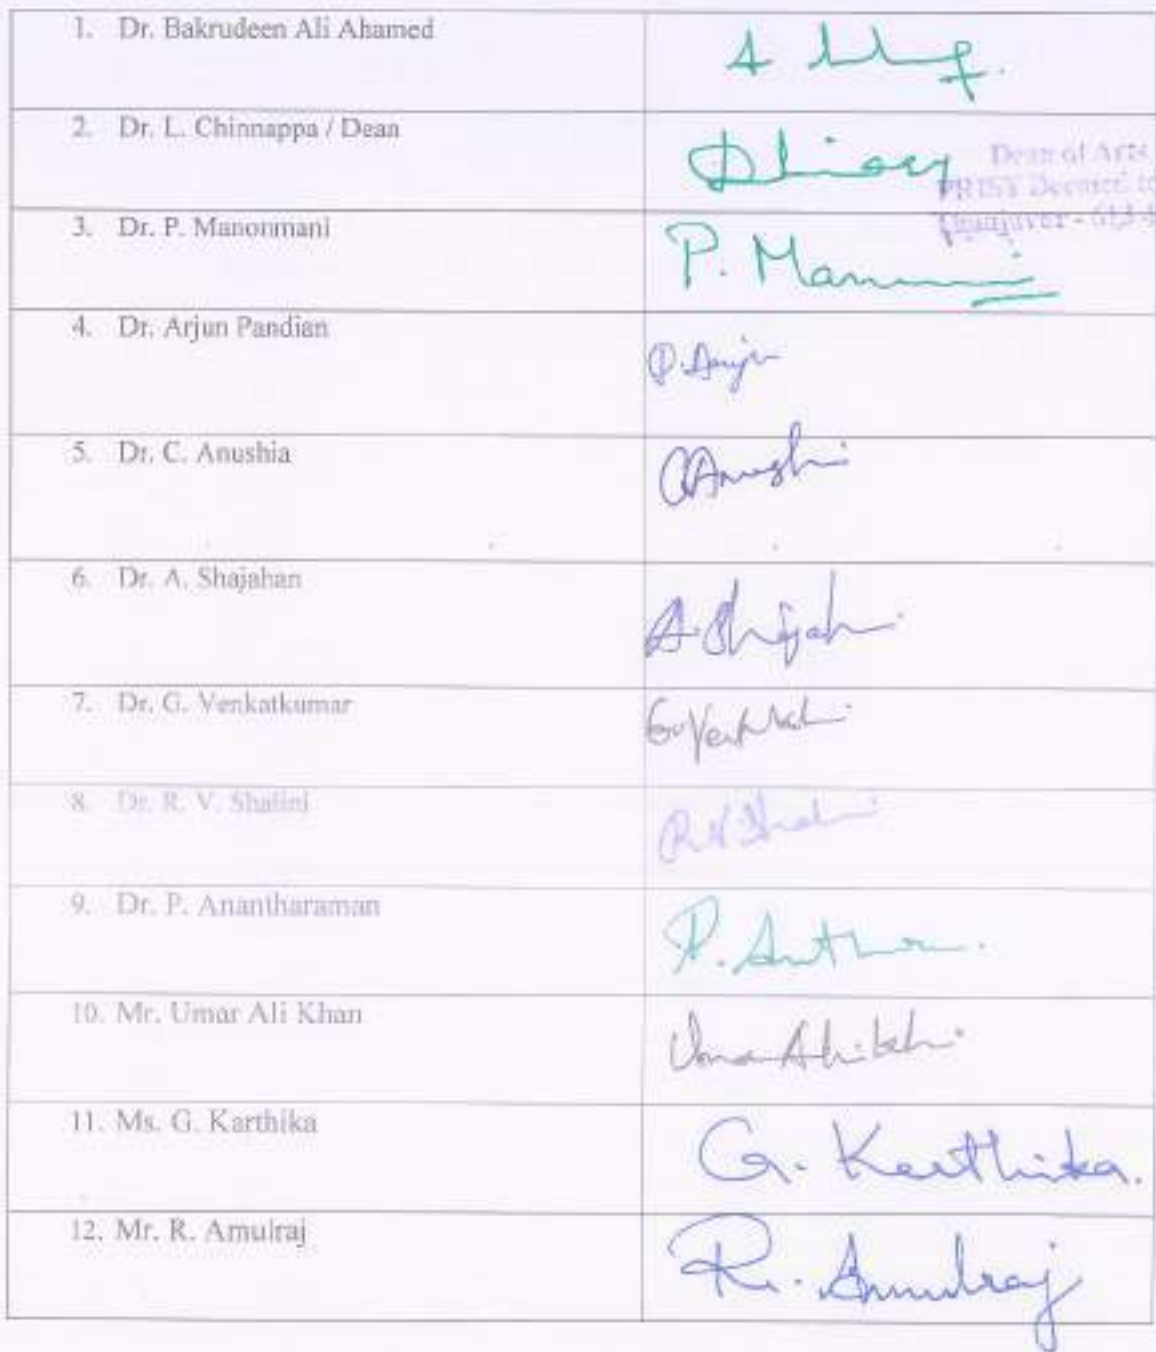 1. Dr. Bakrudeen Ali Ahamed
2. Dr. L. Chinnappa / Dean
Dean of Arts
PRIST Deemed to
Thanjavur - 613 4
3. Dr. P. Manonmani
P. Manonmani
4. Dr. Arjun Pandian
P. Arjun
5. Dr. C. Anushia
C Anushi
6. Dr. A. Shajahan
A. Shajah
7. Dr. G. Venkatkumar
G. Venkat
8. Dr. R. V. Shalini
R. V. Shalini
9. Dr. P. Anantharaman
P. Anthr
10. Mr. Umar Ali Khan
11. Ms. G. Karthika
G. Karthika.
12. Mr. R. Amulraj
R. Amulraj